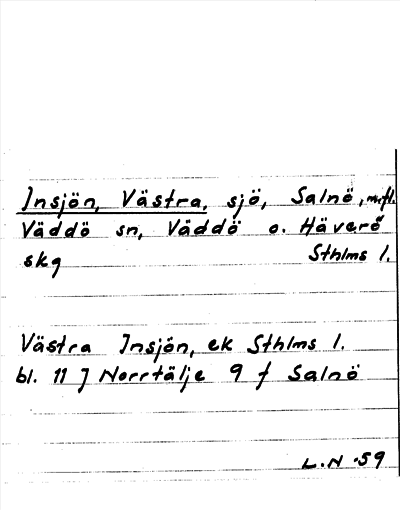 Insjön, Västra, sjö, Salnö, m.fl.
Väddö sn, Väddö o. Häverö
skg Sthlms l.
Västra Insjön, ek Sthlms l.
bl. 11 J Norrtälje 9 f Salnö
L.N -59